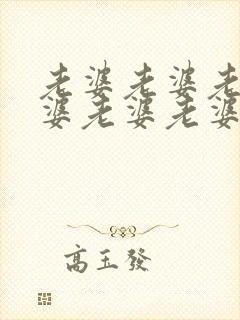 老婆老婆老
婆老婆老婆
高玉發